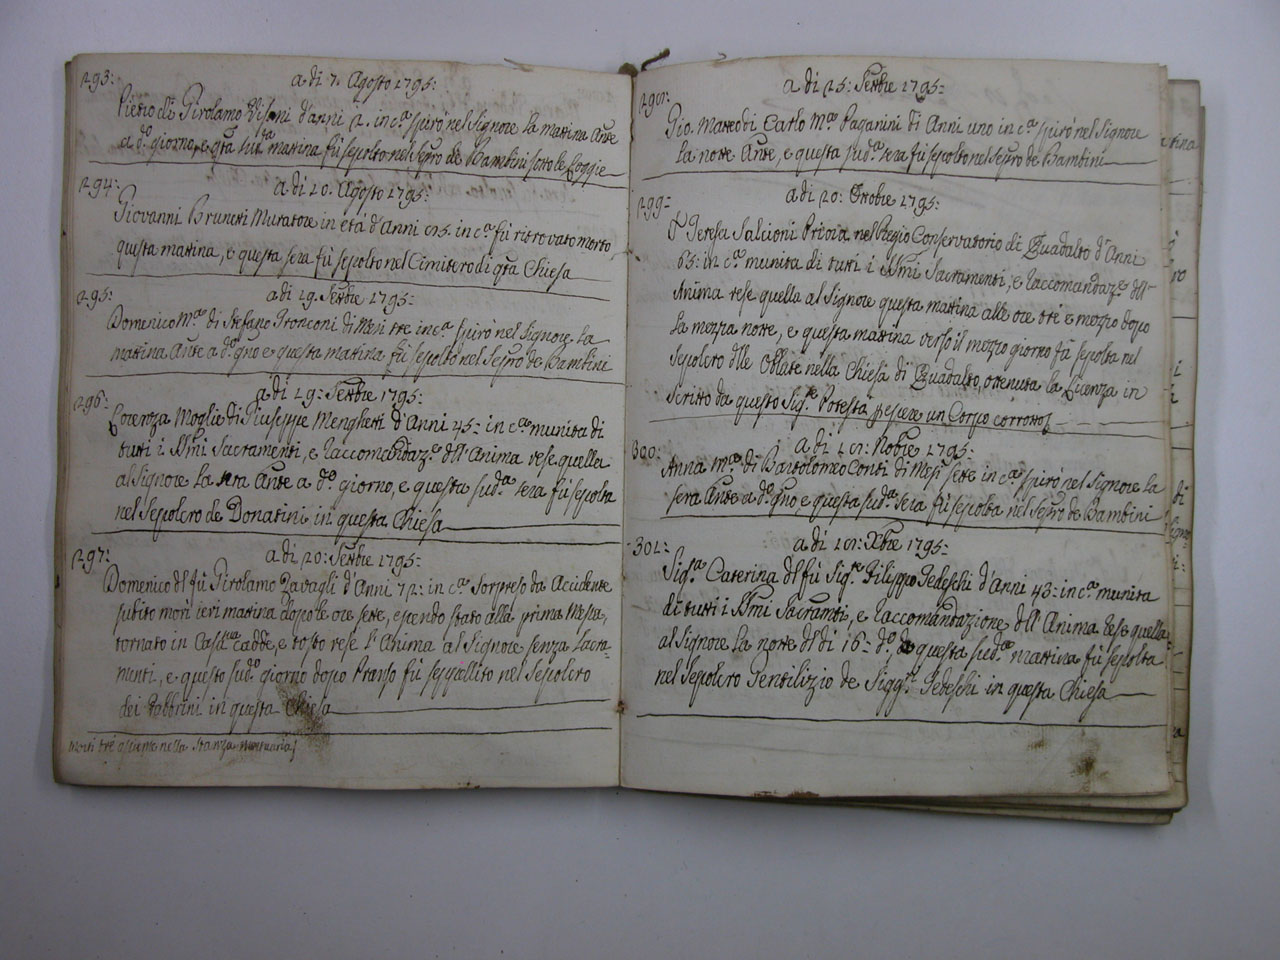 293: a di 7. Agosto 1795:
Pietro di Girolamo Visani d'anni 2. in c.ª spirò nel Signore la mattina Ante
a d.º giorno, e qta sud.ta mattina fù sepolto nel Sepro de Bambini sotto le Loggie
294: a di 20. Agosto 1795:
Giovanni Brunetti Muratore in età d'Anni in c.ª fù ritrovato morto
questa mattina, e questa sera fù sepolto nel Cimitero di qta Chiesa
295: a di 19. Settbre 1795:
Domenico m.º di Stefano Tronconi di Mesi tre in c.ª spirò nel Signore la
mattina Ante a d.º gno e questa mattina fù sepolto nel Sepro de Bambini
296: a di 19: Settbre 1795:
Lorenza Moglie di Giuseppe Menghetti d'Anni 45: in c.ª munita di
tutti i SSmi Sacramenti, e Raccomandaz.e dll'Anima rese quella
al Signore la sera Ante a d.º giorno, e questa sud.ª sera fù sepolta
nel Sepolcro de Donatini in questa Chiesa
297: a di 20: Settbre 1795:
Domenico dl fù Girolamo Zavagli d'Anni 72: in c.ª Sorpreso da Accidente
subito morì ieri mattina dopo le ore sette, essendo stato alla prima Messa,
tornato in Casa cadde, e tosto rese l'Anima al Signore senza Sacra-
menti, e questo sud.º giorno dopo Pranso fù seppellito nel Sepolcro
dei Fabbrini in questa Chiesa
Morti tre assieme nella Stanza Mortuaria
298: a di 25: Settbre 1795:
Gio. Matteo di Carlo m.º Paganini di Anni uno in c.ª spirò nel Signore
la notte Ante, e questa sud.ª sera fù sepolto nel Sepro de Bambini
299- a di 20: Ottobre 1795:
Teresa Salcioni Priora nel Regio Conservatorio di Quadalto d'Anni
65: in c.ª munita di tutti i SSmi Sacramenti, e Raccomandaz.e dll'
Anima rese quella al Signore questa mattina alle ore tre e mezzo dopo
la mezza notte, e questa mattina verso il mezzo giorno fù sepolta nel
Sepolcro dlle Oblate nella Chiesa di Quadalto, ottenuta la Licenza in
scritto da questo Sig.re Potestà p essere un Corpo corrotto
300: a di Nobre 1795:
Anna m.ª di Bartolomeo Conti di Mesi sette in c.ª spirò nel Signore la
sera Ante a d.º gno e questa sud.ª sera fù sepolta nel Sepro de Bambini
301: a di Xbre 1795:
Sig.ª Caterina dl fù Sig.re Filippo Tedeschi d'Anni 43: in c.ª munita
di tutti i SSmi Sacramti, e Raccomandazione dll'Anima Rese quella
al Signore la notte dl di 16: d.º, e questa sud.ª mattina fù sepolta
nel Sepolcro Gentilizio de Sigg.ri Tedeschi in questa Chiesa